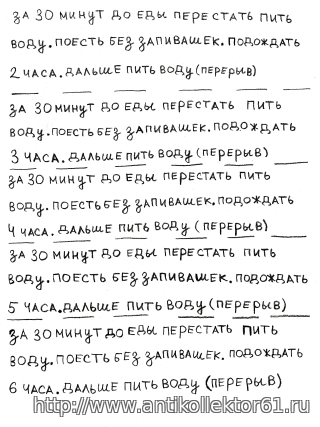 ЗА 30 МИНУТ ДО ЕДЫ ПЕРЕСТАТЬ ПИТЬ
ВОДУ. ПОЕСТЬ БЕЗ ЗАПИВАШЕК. ПОДОЖДАТЬ
2 ЧАСА. ДАЛЬШЕ ПИТЬ ВОДУ (ПЕРЕРЫВ)
ЗА 30 МИНУТ ДО ЕДЫ ПЕРЕСТАТЬ ПИТЬ
ВОДУ. ПОЕСТЬ БЕЗ ЗАПИВАШЕК. ПОДОЖДАТЬ
3 ЧАСА. ДАЛЬШЕ ПИТЬ ВОДУ (ПЕРЕРЫВ)
ЗА 30 МИНУТ ДО ЕДЫ ПЕРЕСТАТЬ ПИТЬ
ВОДУ. ПОЕСТЬ БЕЗ ЗАПИВАШЕК. ПОДОЖДАТЬ
4 ЧАСА. ДАЛЬШЕ ПИТЬ ВОДУ (ПЕРЕРЫВ)
ЗА 30 МИНУТ ДО ЕДЫ ПЕРЕСТАТЬ ПИТЬ
ВОДУ. ПОЕСТЬ БЕЗ ЗАПИВАШЕК. ПОДОЖДАТЬ
5 ЧАСА. ДАЛЬШЕ ПИТЬ ВОДУ (ПЕРЕРЫВ)
ЗА 30 МИНУТ ДО ЕДЫ ПЕРЕСТАТЬ ПИТЬ
ВОДУ. ПОЕСТЬ БЕЗ ЗАПИВАШЕК. ПОДОЖДАТЬ
6 ЧАСА. ДАЛЬШЕ ПИТЬ ВОДУ (ПЕРЕРЫВ)
http://www.antikollektor61.ru